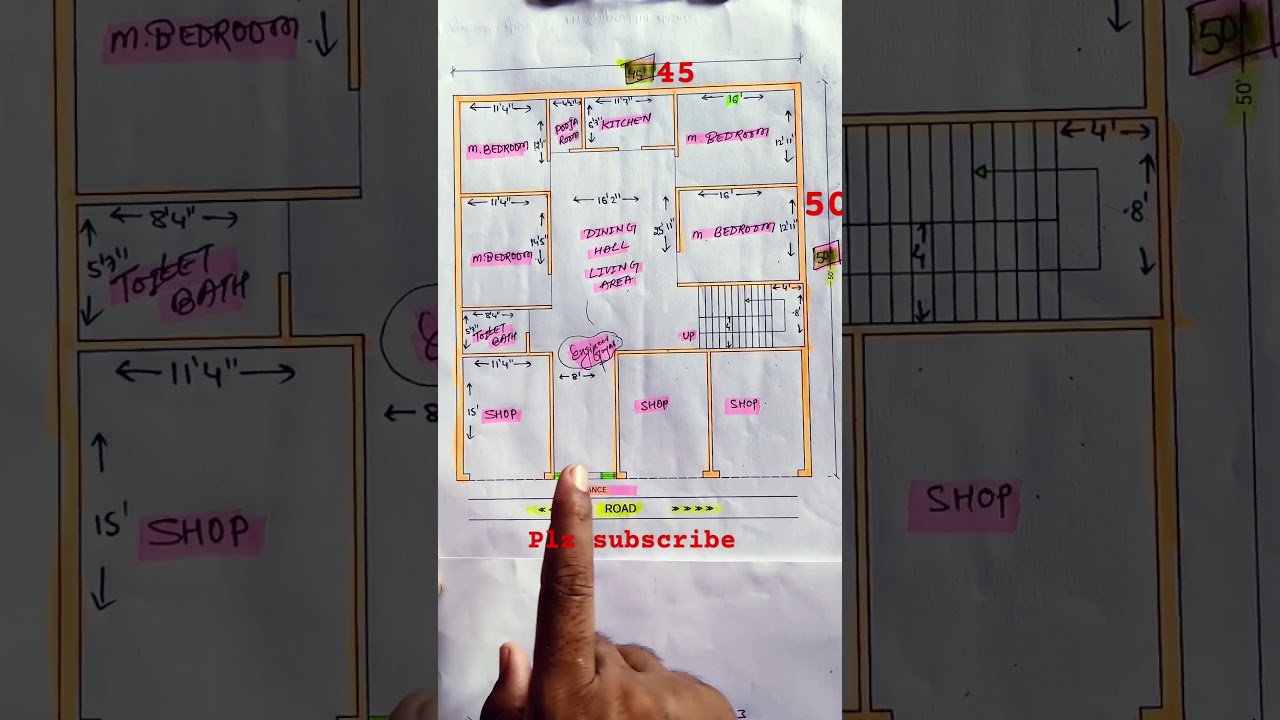 45' 45
11'4" 4'½" 11'7" 16'
M. BEDROOM 12'1" POOJA ROOM 6'7" KITCHEN M. BEDROOM 12'11"
50
50'
11'4" 16'2" 16'
M. BEDROOM 14'5" DINING HALL LIVING AREA 25'11" M. BEDROOM 12'11"
8'4" 4'
5'7" TOILET BATH UP 4' 8'
11'4" 8'
15' SHOP SHOP SHOP
ANCE
ROAD >>>>
Plz subscribe
M. BEDROOM
8'4"
5'7" TOILET BATH
11'4"
15' SHOP
8
50
50'
4'
4' 8'
SHOP
3